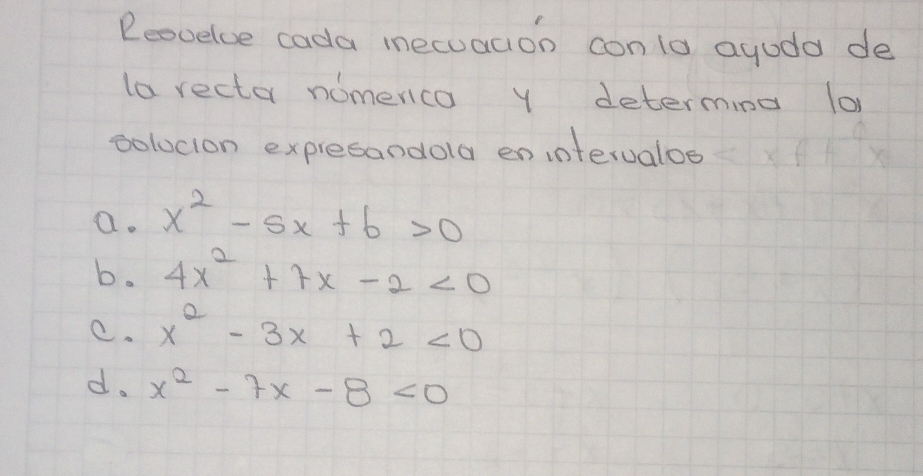 Resuelve cada inecuación con la ayuda de
la recta númerica y determina la
solucion expresandola en intervalos
a. x² - 5x + 6 > 0
b. 4x² + 7x - 2 < 0
c. x² - 3x + 2 < 0
d. x² - 7x - 8 < 0